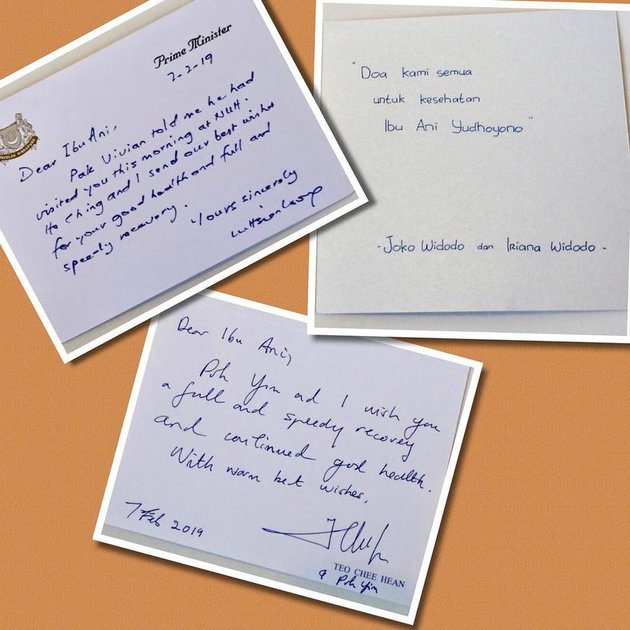 Prime Minister
7-2-19
Dear Ibu Ani,
Pak Vivian told me he had
visited you this morning at NUH.
Ho Ching and I send our best wishes
for your good health and full and
speedy recovery.
Yours sincerely
Lee Hsien Loong
"Doa kami semua
untuk kesehatan
Ibu Ani Yudhoyono"
- Joko Widodo dan Iriana Widodo -
Dear Ibu Ani,
Poh Yim and I wish you
a full and speedy recovery
and continued good health.
With warm best wishes,
7 Feb 2019
TEO CHEE HEAN
& Poh Yim